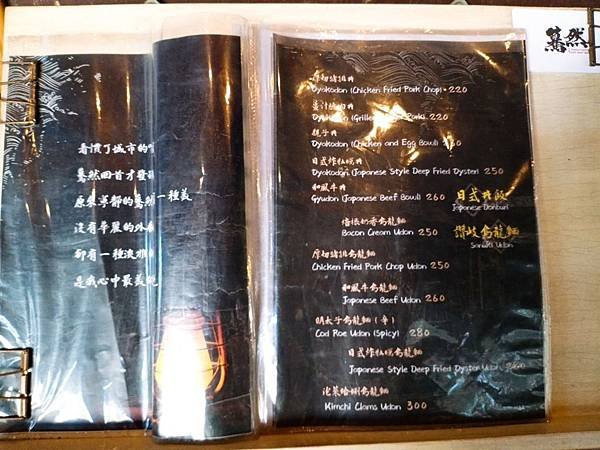 驀然
看慣了城市的
驀然回首才發
原來京都的驀然
一種美
沒有華麗的外
卻有一種淡雅
是我心中最美
厚切豬排丼
Oyakodon (Chicken Fried Pork Chop) 220
薑汁燒肉丼
親子丼
Oyakodon (Chicken and Egg Bowl) 260
日式炸牡蠣丼
Oyakodon (Japanese Style Deep Fried Oyster) 250
和風牛丼
Gyudon (Japanese Beef Bowl) 260
日式丼飯
Japanese Donburi
培根奶香烏龍麵
Bacon Cream Udon 250
讚岐烏龍麵
Sanuki Udon
厚切豬排烏龍麵
Chicken Fried Pork Chop Udon 250
和風牛烏龍麵
Japanese Beef Udon 260
明太子烏龍麵(辛)
Cod Roe Udon (Spicy) 280
日式炸牡蠣烏龍麵
Japanese Style Deep Fried Oyster Udon 260
泡菜蛤蜊烏龍麵
Kimchi Clams Udon 300